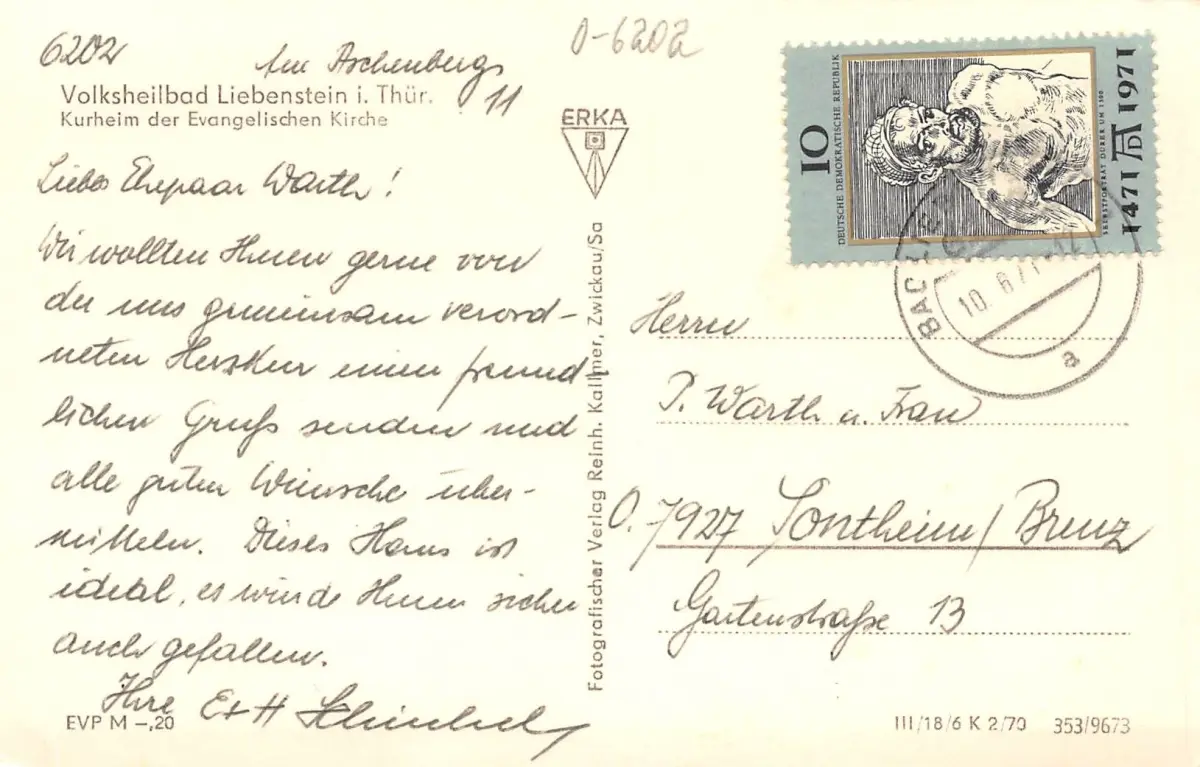 6202
O-6202
Am Aschenberg
11
Volksheilbad Liebenstein i. Thür.
Kurheim der Evangelischen Kirche
Liebes Ehepaar Warth!
Wir wollten Ihnen gerne von
der uns gemeinsam verord-
neten Herzkur einen freund-
lichen Gruß senden und
alle guten Wünsche über-
mitteln. Dieses Haus ist
ideal, es würde Ihnen sicher
auch gefallen.
Ihre E+H
EVP M -,20
ERKA
Fotografischer Verlag Reinh. Kallmer, Zwickau/Sa
10
DEUTSCHE DEMOKRATISCHE REPUBLIK
SELBSTPORTRÄT DÜRER UM 1500
1471 AD 1971
BAD
10.6.71-12
a
Herrn
P. Warth u. Frau
7927 Sontheim/Brenz
Gartenstraße 13
III/18/6 K 2/70 353/9673